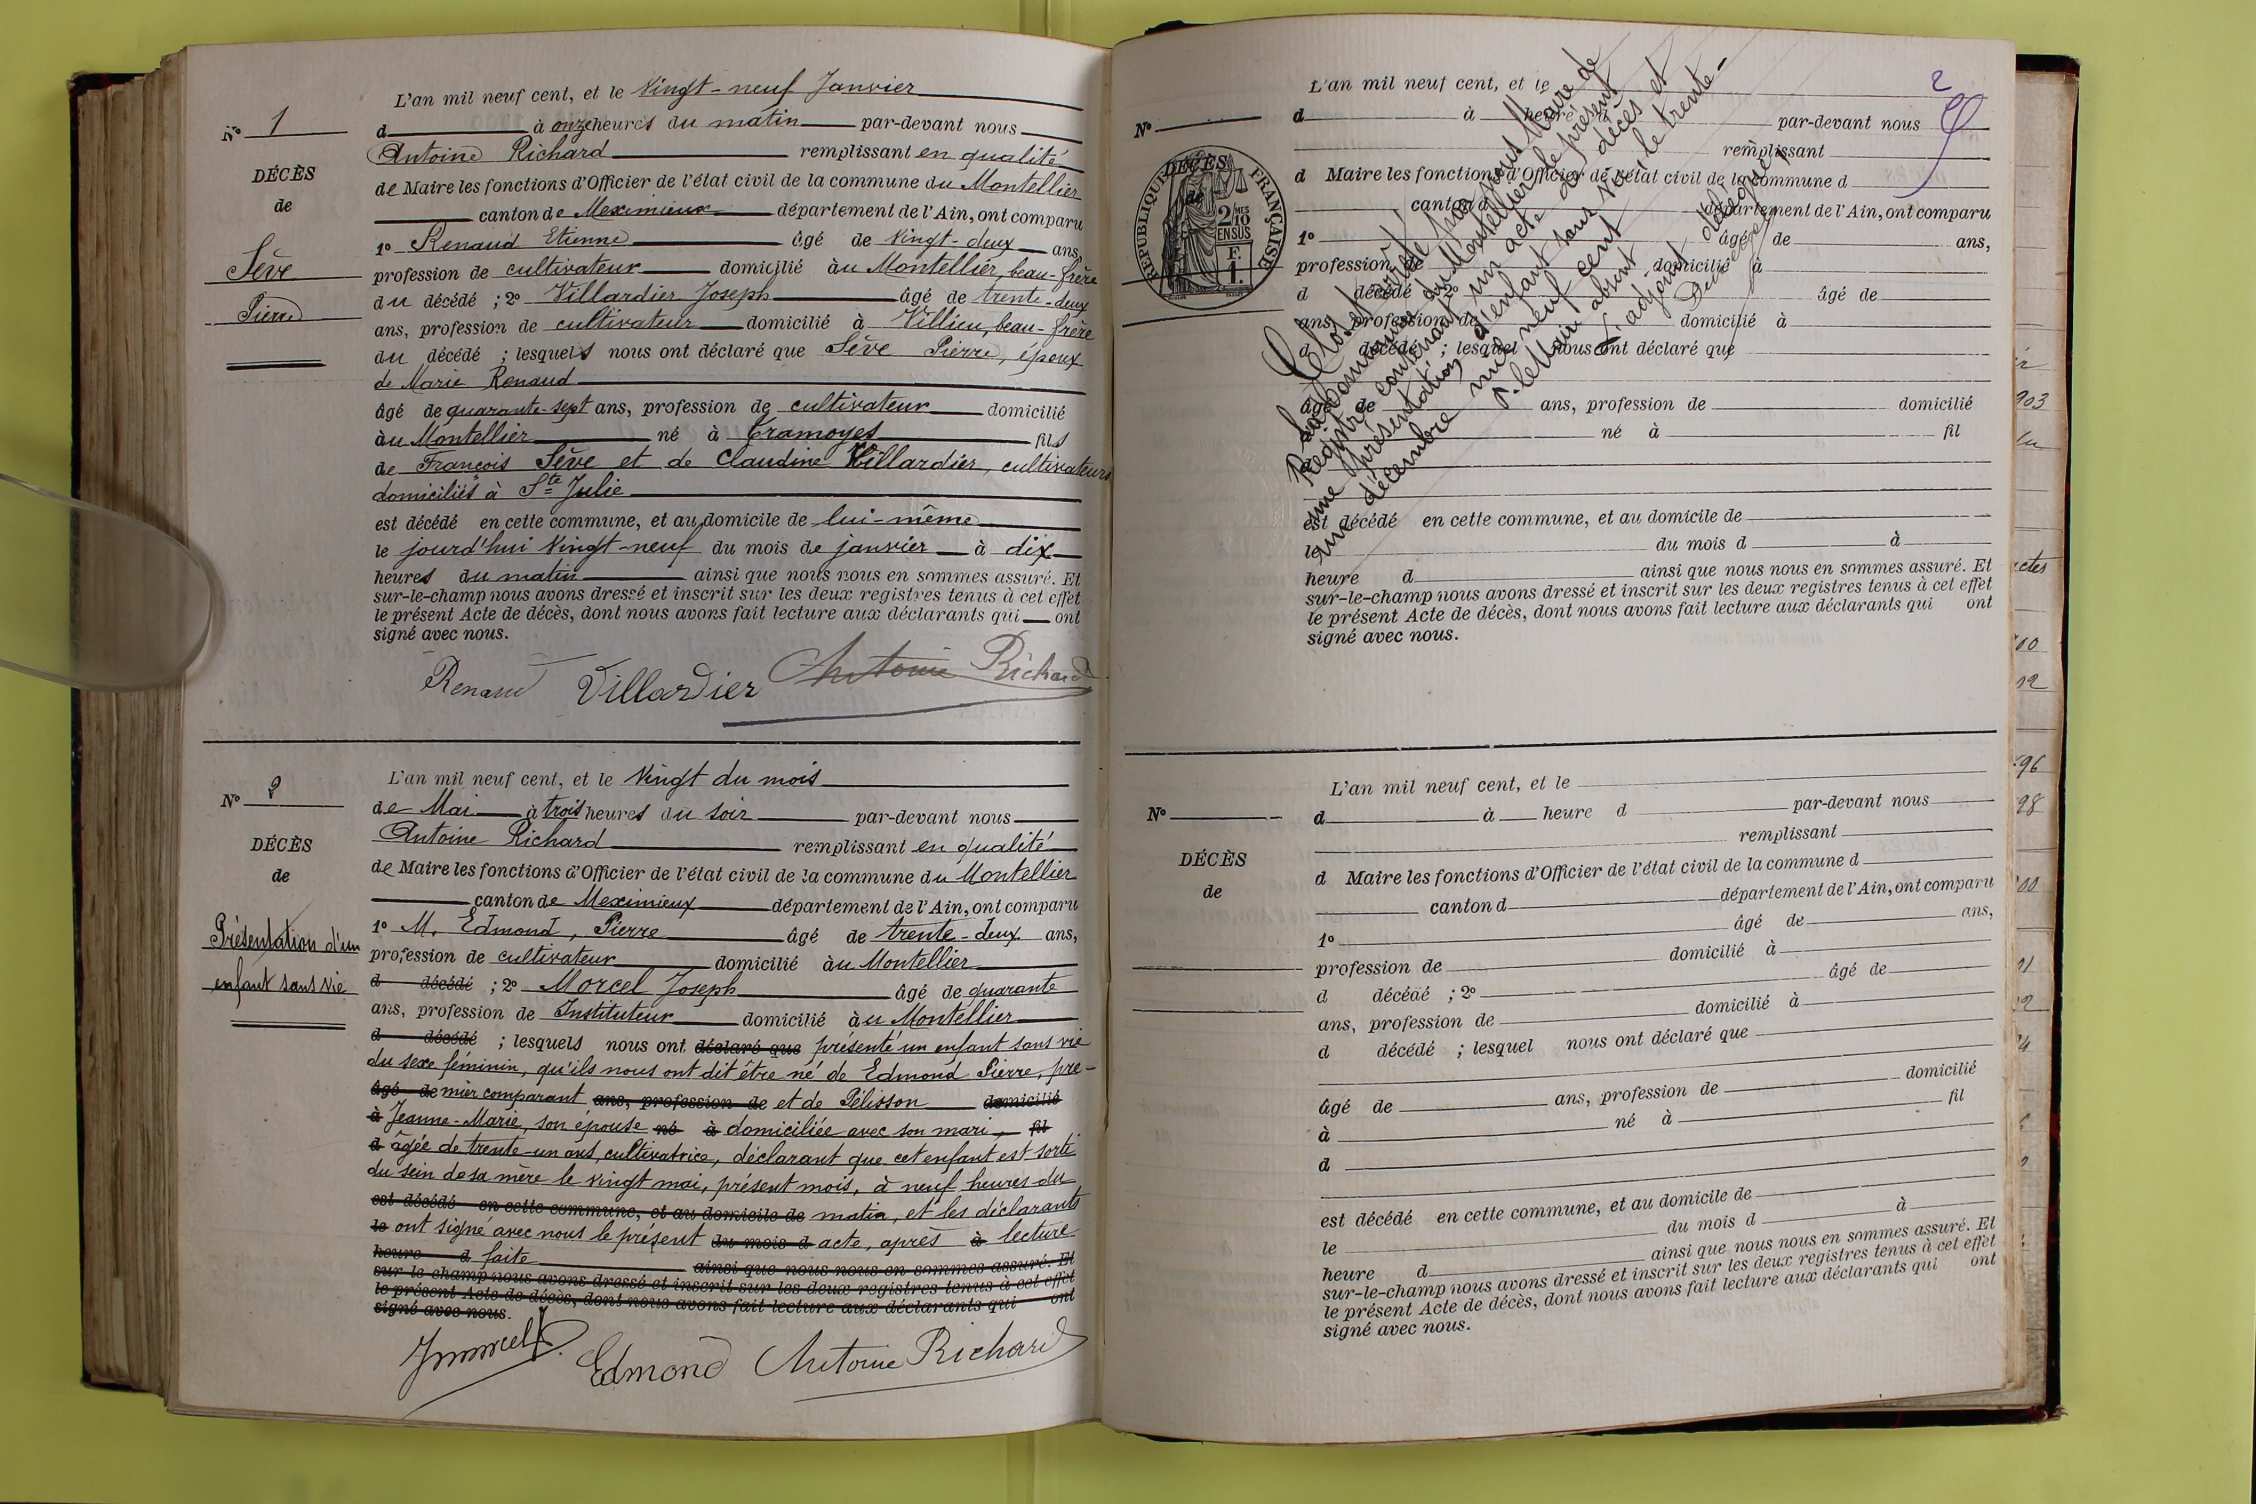 L'an mil neuf cent, et le Vingt-neuf Janvier
N° 1
d à onze heures du matin par-devant nous
Antoine Richard remplissant en qualité
DÉCÈS
de
Sève
Pierre
de Maire les fonctions d'Officier de l'état civil de la commune du Montellier
canton de Meximieux département de l'Ain, ont comparu
1° Renaud Etienne âgé de Vingt-deux ans,
profession de cultivateur domicilié àu Montellier, beau-frère
du décédé ; 2° Villardier Joseph âgé de trente-deux
ans, profession de cultivateur domicilié à Villieu, beau-frère
du décédé ; lesquels nous ont déclaré que Sève Pierre, époux
de Marie Renaud
âgé de quarante-sept ans, profession de cultivateur domicilié
àu Montellier né à Tramoyes fils
de François Sève et de Claudine Villardier, cultivateurs
domiciliés à Ste Julie
est décédé en cette commune, et au domicile de lui-même
le jourd'hui Vingt-neuf du mois de janvier à dix
heures du matin ainsi que nous nous en sommes assuré. Et
sur-le-champ nous avons dressé et inscrit sur les deux registres tenus à cet effet
le présent Acte de décès, dont nous avons fait lecture aux déclarants qui ont
signé avec nous.
Renaud Villardier Antoine Richard
L'an mil neuf cent, et le Vingt du mois
N° 2
de Mai à trois heures du soir par-devant nous
Antoine Richard remplissant en qualité
DÉCÈS
de
Présentation d'un
enfant sans vie
de Maire les fonctions d'Officier de l'état civil de la commune du Montellier
canton de Meximieux département de l'Ain, ont comparu
1° M. Edmond, Pierre âgé de trente-deux ans,
profession de cultivateur domicilié àu Montellier
d décédé ; 2° Morcel Joseph âgé de quarante
ans, profession de Instituteur domicilié àu Montellier
d décédé ; lesquels nous ont déclaré que présenté un enfant sans vie
du sexe féminin, qu'ils nous ont dit être né de Edmond Pierre, pre-
âgé de mier comparant ans, profession de et de Pélisson domicilié
à Jeanne-Marie, son épouse né à domiciliée avec son mari, fil
d âgée de trente-un ans, cultivatrice, déclarant que cet enfant est sorti
du sein de sa mère le vingt mai, présent mois, à neuf heures du
est décédé en cette commune, et au domicile de matin, et les déclarants
le ont signé avec nous le présent du mois d acte, après à lecture
heure d faite ainsi que nous nous en sommes assuré. Et
sur-le-champ nous avons dressé et inscrit sur les deux registres tenus à cet effet
le présent Acte de décès, dont nous avons fait lecture aux déclarants qui ont
signé avec nous.
Jmorcel Edmond Antoine Richard
2
L'an mil neuf cent, et le
N°
d à heure d par-devant nous
remplissant
DÉCÈS
de
RÉPUBLIQUE FRANÇAISE
2/10 MES
EN SUS
F.
1.
d Maire les fonctions d'Officier de l'état civil de la commune d
canton d département de l'Ain, ont comparu
1° âgé de ans,
profession de domicilié à
d décédé 2° âgé de
ans, profession de domicilié à
d décédé ; lesquel nous ont déclaré que
âgé de ans, profession de domicilié
né à fil
est décédé en cette commune, et au domicile de
le du mois d à
heure d ainsi que nous nous en sommes assuré. Et
sur-le-champ nous avons dressé et inscrit sur les deux registres tenus à cet effet
le présent Acte de décès, dont nous avons fait lecture aux déclarants qui ont
signé avec nous.
Clos et arrêté par nous Maire de
la Commune du Montellier le présent
Registre contenant un acte de décès et
une présentation d'enfant sans vie le trente-
un décembre mil neuf cent
P. le Maire absent
L'adjoint délégué
L'an mil neuf cent, et le
N°
d à heure d par-devant nous
remplissant
DÉCÈS
de
d Maire les fonctions d'Officier de l'état civil de la commune d
canton d département de l'Ain, ont comparu
1° âgé de ans,
profession de domicilié à
d décédé ; 2° âgé de
ans, profession de domicilié à
d décédé ; lesquel nous ont déclaré que
âgé de ans, profession de domicilié
à né à fil
d
est décédé en cette commune, et au domicile de
le du mois d à
heure d ainsi que nous nous en sommes assuré. Et
sur-le-champ nous avons dressé et inscrit sur les deux registres tenus à cet effet
le présent Acte de décès, dont nous avons fait lecture aux déclarants qui ont
signé avec nous.
903
ctes
96
98